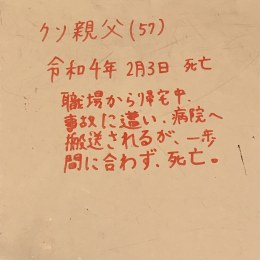 クソ親父(57)
令和4年 2月3日 死亡
職場から帰宅中、
事故に遭い、病院へ
搬送されるが、一歩
間に合わず、死亡。